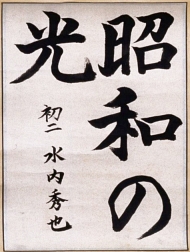 昭和の
光
初二 水内秀也